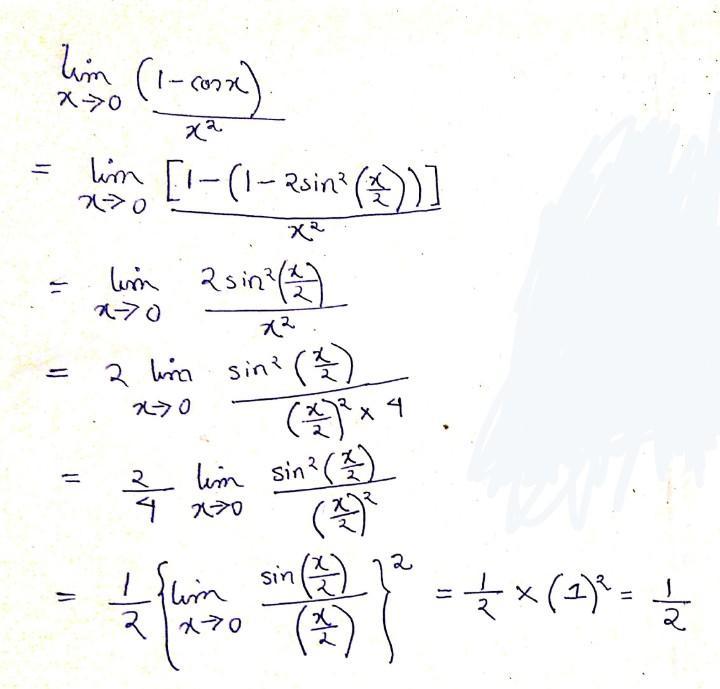 lim x→0 (1-cosx)/x²
= lim x→0 [1-(1-2sin²(x/2))]/x²
= lim x→0 2sin²(x/2)/x²
= 2 lim x→0 sin²(x/2)/((x/2)² × 4)
= 2/4 lim x→0 sin²(x/2)/(x/2)²
= 1/2 {lim x→0 sin(x/2)/(x/2)}² = 1/2 × (1)² = 1/2